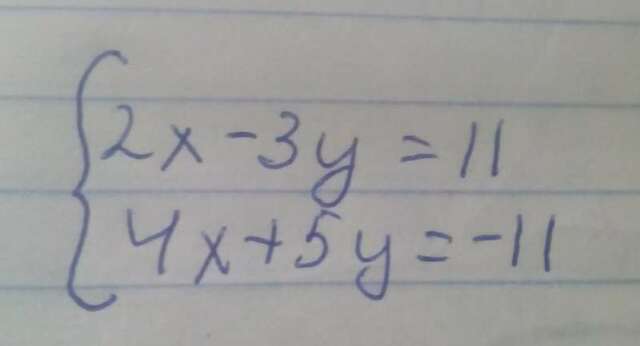 2x-3y=11
4x+5y=-11